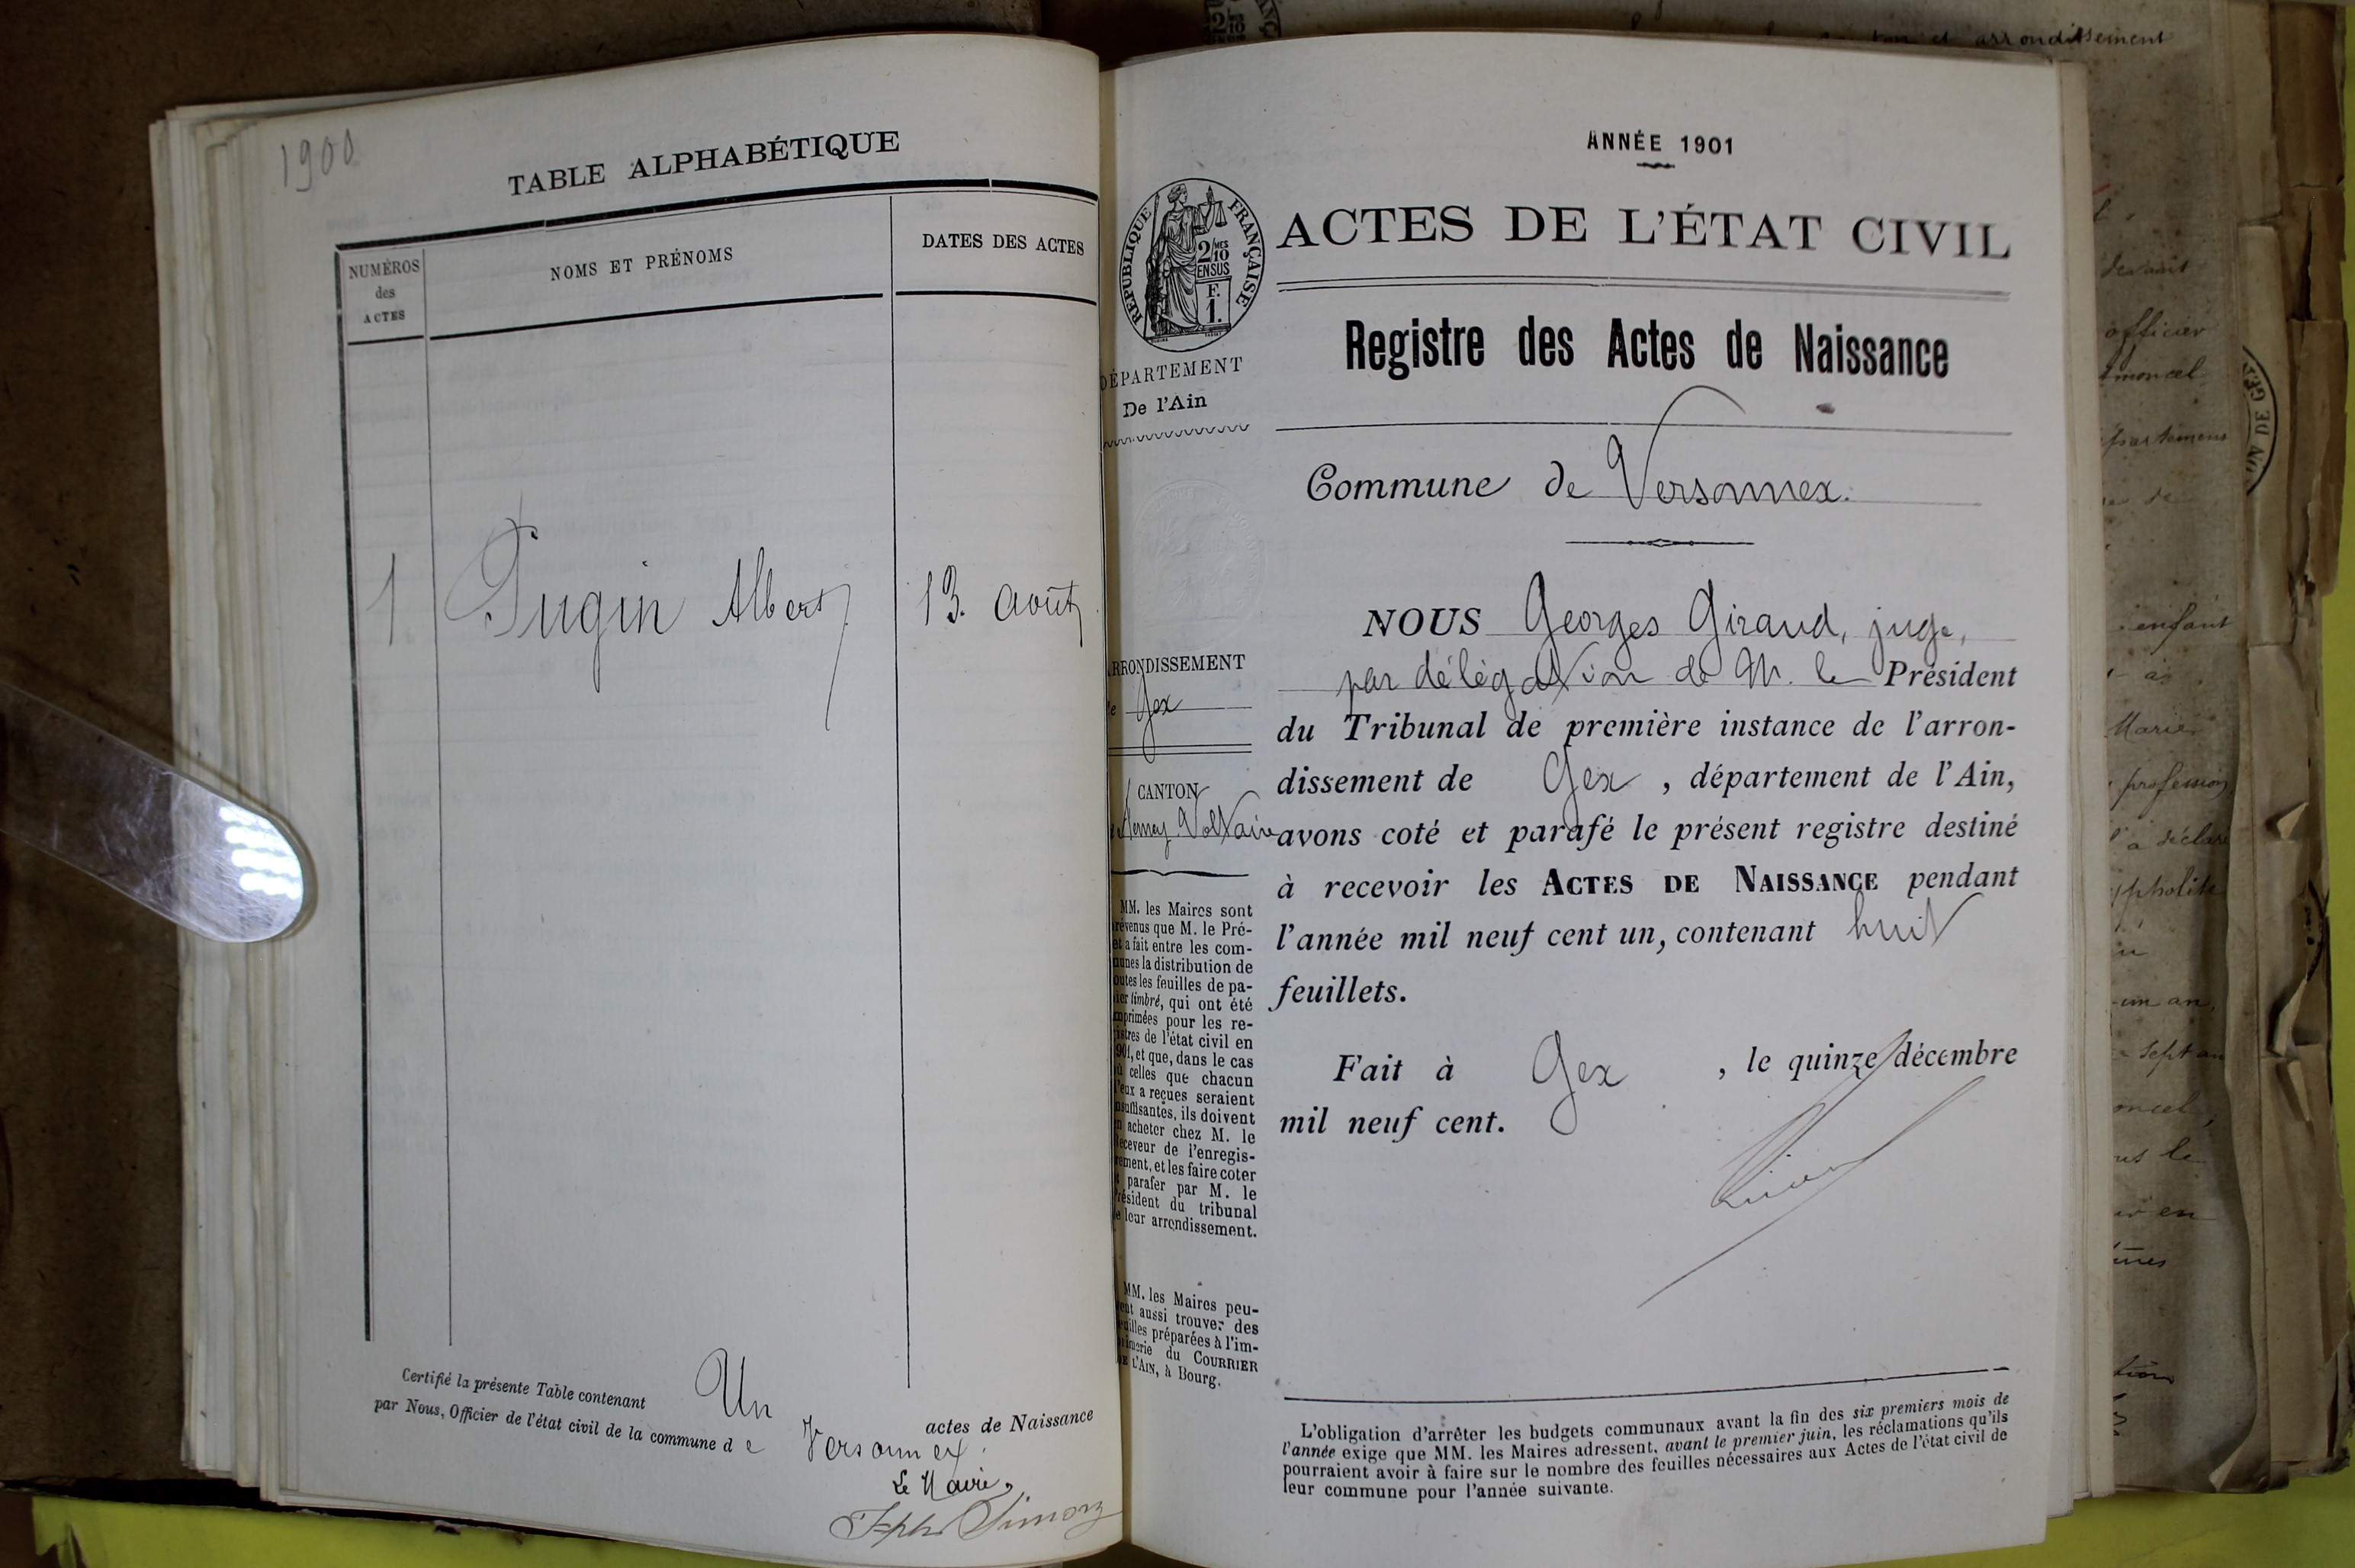 1900
TABLE ALPHABÉTIQUE
NUMÉROS
des
ACTES
NOMS ET PRÉNOMS
DATES DES ACTES
1 Pugin Albert 13. août
Certifié la présente Table contenant Un actes de Naissance
par Nous, Officier de l'état civil de la commune de Versonnex.
Le Maire,
Simon
ANNÉE 1901
RÉPUBLIQUE FRANÇAISE
2/10 MES
EN SUS
F.
1.
ACTES DE L'ÉTAT CIVIL
Registre des Actes de Naissance
Commune de Versonnex.
DÉPARTEMENT
De l'Ain
ARRONDISSEMENT
de Gex
CANTON
de Ferney-Voltaire
MM. les Maires sont
prévenus que M. le Pré-
et a fait entre les com-
munes la distribution de
outes les feuilles de pa-
ier timbré, qui ont été
mprimées pour les re-
istres de l'état civil en
901, et que, dans le cas
ù celles que chacun
d'eux a reçues seraient
nsuffisantes, ils doivent
n acheter chez M. le
Receveur de l'enregis-
rement, et les faire coter
t parafer par M. le
Président du tribunal
e leur arrondissement.
MM. les Maires peu-
vent aussi trouver des
euilles préparées à l'im-
rimerie du COURRIER
DE L'AIN, à Bourg.
NOUS Georges Giraud, juge,
par délégation de M. le Président
du Tribunal de première instance de l'arron-
dissement de Gex, département de l'Ain,
avons coté et parafé le présent registre destiné
à recevoir les ACTES DE NAISSANCE pendant
l'année mil neuf cent un, contenant huit
feuillets.
Fait à Gex, le quinze décembre
mil neuf cent.
L'obligation d'arrêter les budgets communaux avant la fin des six premiers mois de
l'année exige que MM. les Maires adressent, avant le premier juin, les réclamations qu'ils
pourraient avoir à faire sur le nombre des feuilles nécessaires aux Actes de l'état civil de
leur commune pour l'année suivante.
arrondissement
devant
officier
enfant
Marie
profession
a déclaré